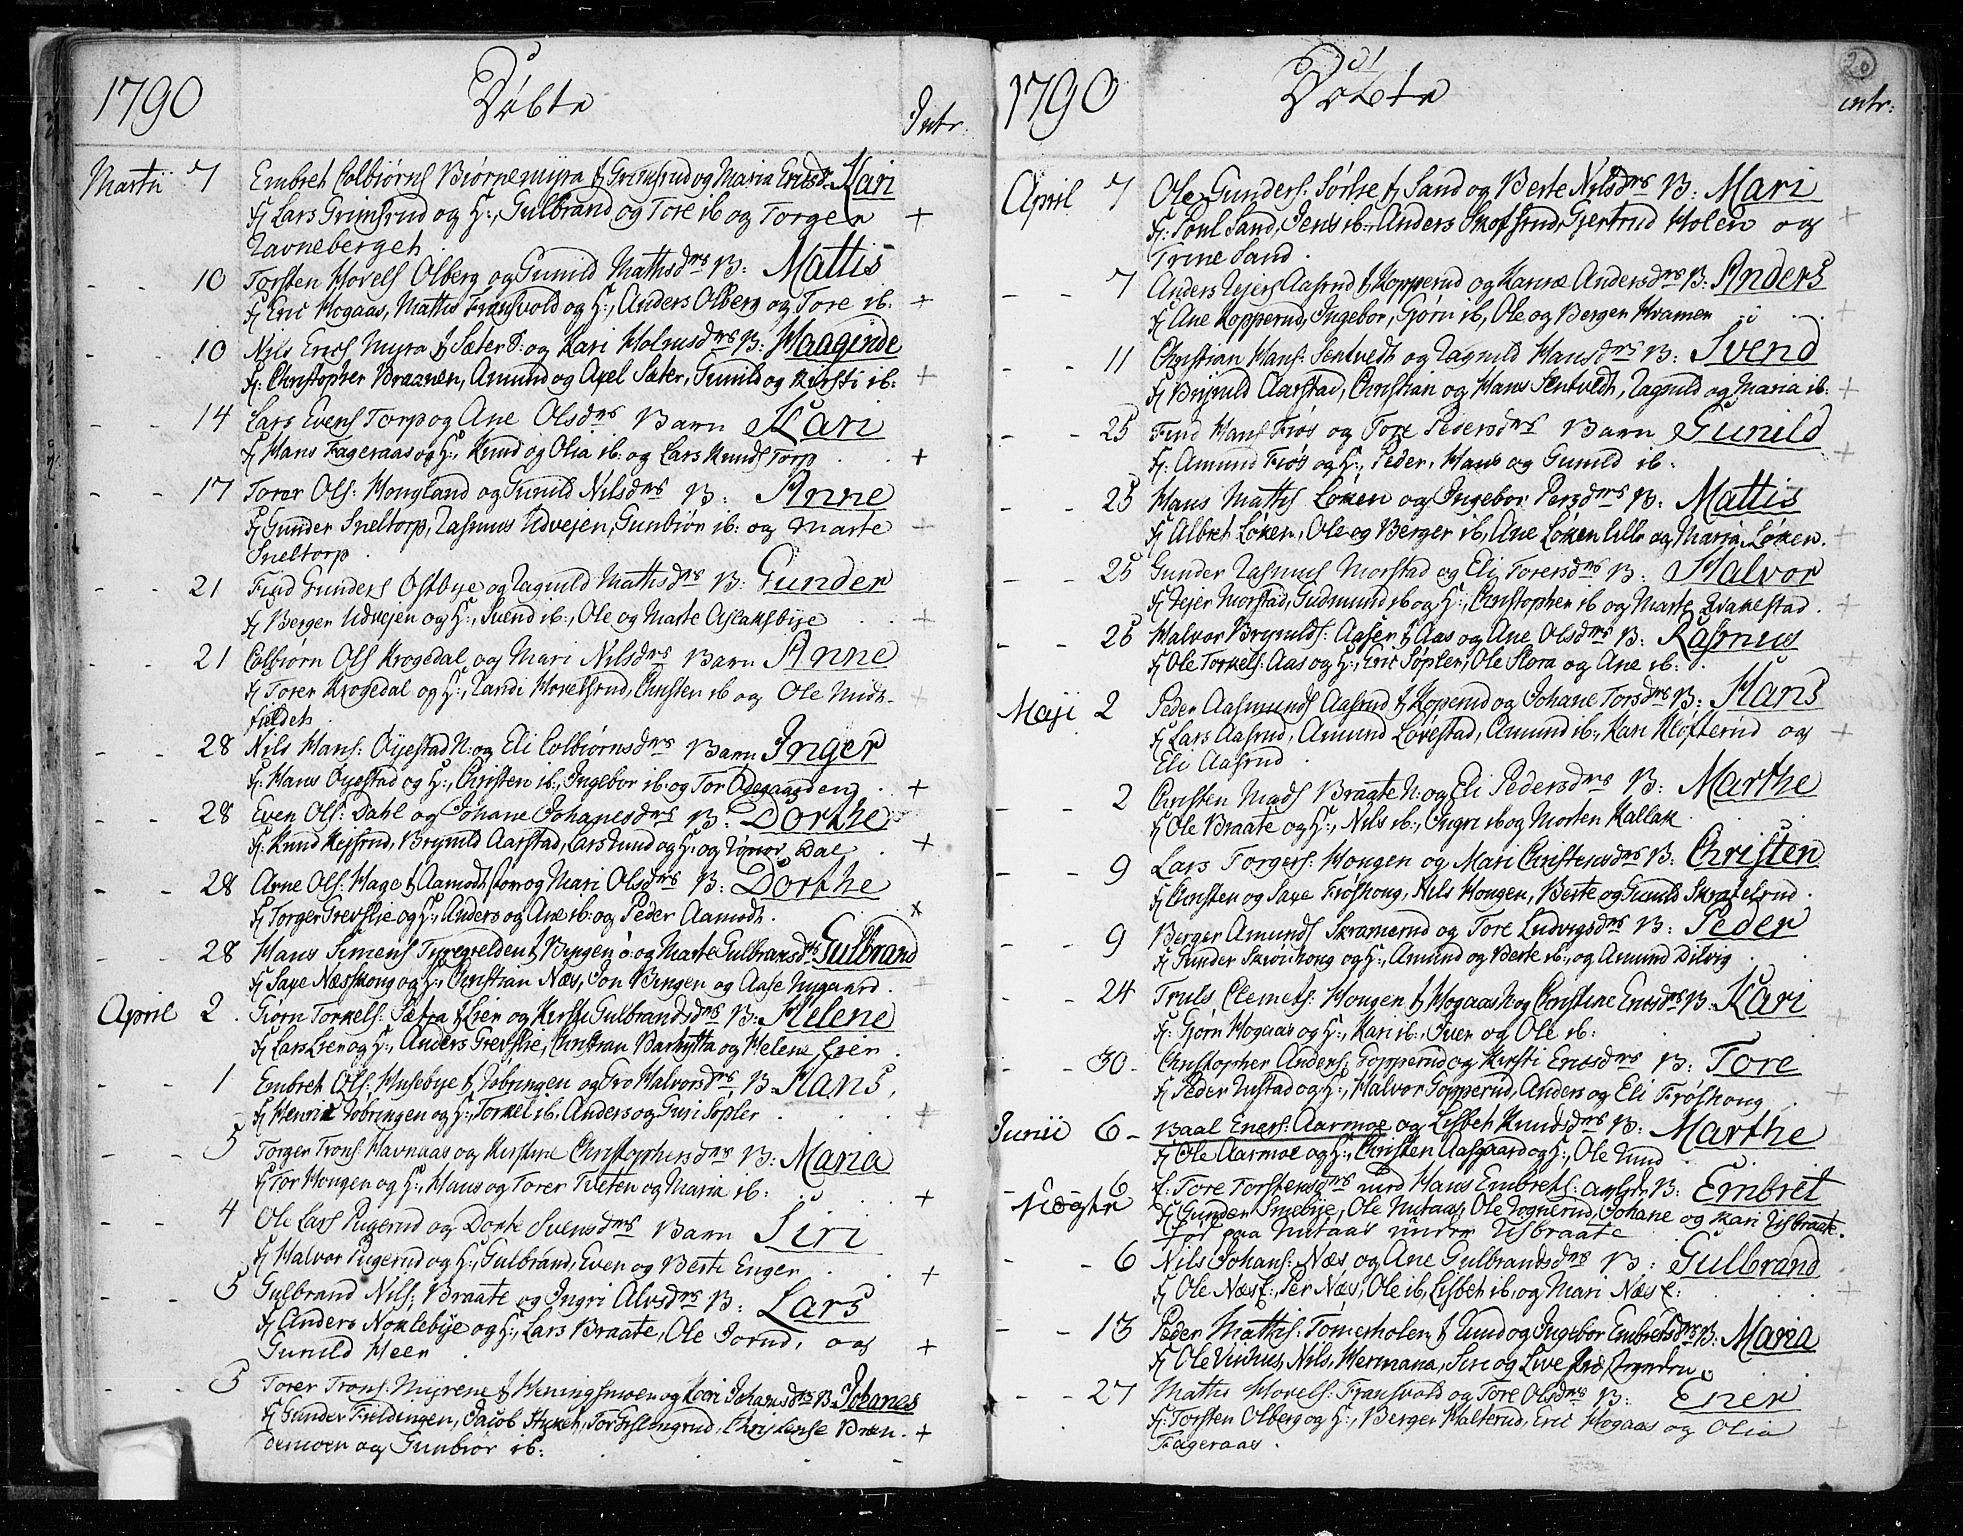 1790 Döbte Intr:
Martii 7 Embret Colbiörns Biörnemyra f Grimsrud og Maria Ericsd. Kari
f/ Lars Grimsrud og H:, Gulbrand og Tore ib og Torger +
Ravneberget
- - 10 Torsten Hovels Olberg og Gunild Mathisdrs B: Mattis
f/ Eric Hogaas, Mattis Fransvold og H:, Anders Olberg og Tore ib. +
- - 10 Nils Erics Myra f Sæter S: og Kari Holmsdrs B: Haagine
f/: Christopher Braanen, Amund og Axel Sæter, Gunild og Kirsti ib: +
- - 14 Lars Evens Torp og Ane Olsdrs Barn Kari
f/ Hans Fageraas og H:, Knud og Olia ib: og Lars Knuds Torp +
- - 17 Torer Ols: Hougland og Gunild Nilsdrs B: Anne
f/ Gunder Sneltorp, Rasmus Udvejen, Gunbiör ib: og Marte +
Sneltorp.
- - 21 Find Gunders Ostbye og Ragnild Mathisdrs B: Gunder
f/ Berger Udvejen og H:, Svend ib:, Ole og Marte Aslaksbye +
- - 21 Colbiörn Ols Krogedal og Mari Nilsdrs Barn Anne
f/ Torer Krogedal og H:, Randi Hovelsrud, Christen ib og Ole Midt- +
fieldet
- - 28 Nils Hans: Öyestad N: og Eli Colbiörnsdrs Barn Inger
f/: Hans Öyestad og H:, Christen ib:, Ingebor ib: og Tor Ödegaarden +
- - 28 Even Ols: Dahl og Johane Johanesdrs B: Dorthe
f/: Knud Kejsrud, Brynild Aarstad, Lars Lund og H: og Rönov Dal +
- - 28 Arne Ols: Hage f Aamodt stor og Mari Olsdrs B: Dorthe
f/ Torger Grevslie og H:, Anders og Ane ib: og Peder Aamodt. x
- - 28 Hans Simens Tyregrelden f Bingen ö og Marte Gulbransdrs Gulbrand
f/ Saxe Næsskoug og H:, Christian Næs, Jon Bingen og Aase Nygaard +
April 2 Giörn Torkels: Sætra f Lier og Kirsti Gulbrandsdrs B: Helene
f/ Lars Lier og H:, Anders Grevslie, Christian Barhytta og Helene Lier +
- - 1 Embret Ols: Husebye f Robringen og Gro Halvorsdrs B. Hans
f/ Henric Robringen og H:, Torkel ib: Anders og Guri Sopler +
- - 5 Torger Trons: Havnaas og Kirstine Christophersdrs B: Maria
f/ Tor Hougen og H:, Hans og Torer Tveten og Maria ib: +
- - 4 Ole Lars Rugerud og Dorte Svensdrs Barn Siri
f/ Halvor Rugerud og H:, Gulbrand, Even og Berte Enger +
- - 5 Gulbrand Nils: Braate og Ingri Alvsdrs B: Lars
f/ Anders Noklebye og H:, Lars Braate, Ole Jorud, og +
Gunild Heer
- - 5 Torer Trons: Myrene f Heningsmoen og Kari Johansdrs B. Johanes
f/ Gunder Fieldingen, Jacob Hyket, Tor Förslengrud, Christense Bræn- +
demoen og Gunbiör ib:
1790 Döbte intr: 20
April 7 Ole Gunders: Sörlie f Sand og Berte Nilsdrs B: Mari
f/: Poul Sand, Jens ib:, Anders Skofsrud, Gjertrud Holen og +
Trine Sand.
- - 7 Anders Rejers Aasrud f Kopperud og Karine Andersdrs B: Anders
f/ Ane Kopperud, Ingebor, Gjörn ib, Ole og Berger Kvamen +
- - 11 Christian Hans: Sentvedt og Ragnild Hansdrs B: Svend
f/ Brynild Aarstad, Christian og Hans Sentvedt, Ragnild og Maria ib: +
- - 25 Find Hans Friös og Tore Pedersdrs Barn Gunild
f/: Amund Friös og H:, Peder, Hans og Gunild ib: +
- - 25 Hans Mathis Löken og Ingebor Persdrs B: Mattis
f/ Albret Löken, Ole og Berger ib, Ane Löken lille og Maria Löken. +
- - 25 Gunder Rasmus Morstad og Eli Torersdrs B: Halvor
f/ Rejer Morstad, Gudmund ib og H:, Christopher ib og Marte Krakestad. +
- - 25 Halvor Brynilds: Aaser f Aas og Ane Olsdrs B: Rasmus
f/ Ole Torkels: Aas og H:, Eric Sopler, Ole Flora og Ane ib: +
Maji 2 Peder Aasmunds Aasrud f Kopperud og Johane Torsdrs B: Hans
f/ Lars Aasrud, Amund Lövestad, Amund ib:, Kari Klofterud og +
Eli Aasrud.
- - 2 Christen Mads Braate N: og Eli Pedersdrs B: Marthe
f/ Ole Braate og H:, Nils ib:, Ingri ib og Morten Kallak
- - 9 Lars Torgers: Hougen og Mari Christensdrs B: Christen
f/ Christen og Saxe Fröshoug, Nils Hougen, Berte og Gunild Skratelsrud.
- - 9 Berger Amunds Skramerud og Tore Ludvigsdrs B: Peder
f/ Gunder Skouihoug og H:, Amund og Berte ib:, og Amund Dilvig
- - 24 Truls Clemets: Hougen f Hogaas N og Christine Ericsdrs B. Kari
f/: Gjörn Hogaas og H:, Kari ib:, Iver og Ole ib: +
- - 30 - Christopher Anders: Gopperud og Kirsti Ericsdrs B: Tore
f/ Peder Rustad og H:, Halvor Gopperud, Anders og Eli Fröshoug +
Junii 6 - Baal Eners: Aarmoe og Lisbet Knudsdrs B: Marthe
f/ Ole Aarmoe og H:, Christen Aasgaard og H:, Ole Lund
- 6 f: Tore Torstensdrs med Hans Embrets: B: Embret
Uægte f/ Gunder Smebye, Ole Mutaas, Ole Rognerud, Johane og Kari Risbraate.
föd paa Mutaas under Risbraate
- - 6 Nils Johans: Næs og Ane Gulbrandsdrs B: Gulbrand
f/ Ole Næs f:, Per Næs, Ole ib, Lisbet ib, og Mari Næs f:
- - 13 Peder Mathis: Tömerholen f Lund og Ingebor Embretsdrs B: Maria
f/ Ole Vinhus, Nils, Hermana, Siri og Live
- - 27 Mathis Hovels: Fransvold og Tore Olsdrs B: Ener
f/: Torsten Olberg og H:, Berger Halterud, Eric Hogaas og Olia +
Fageraas.